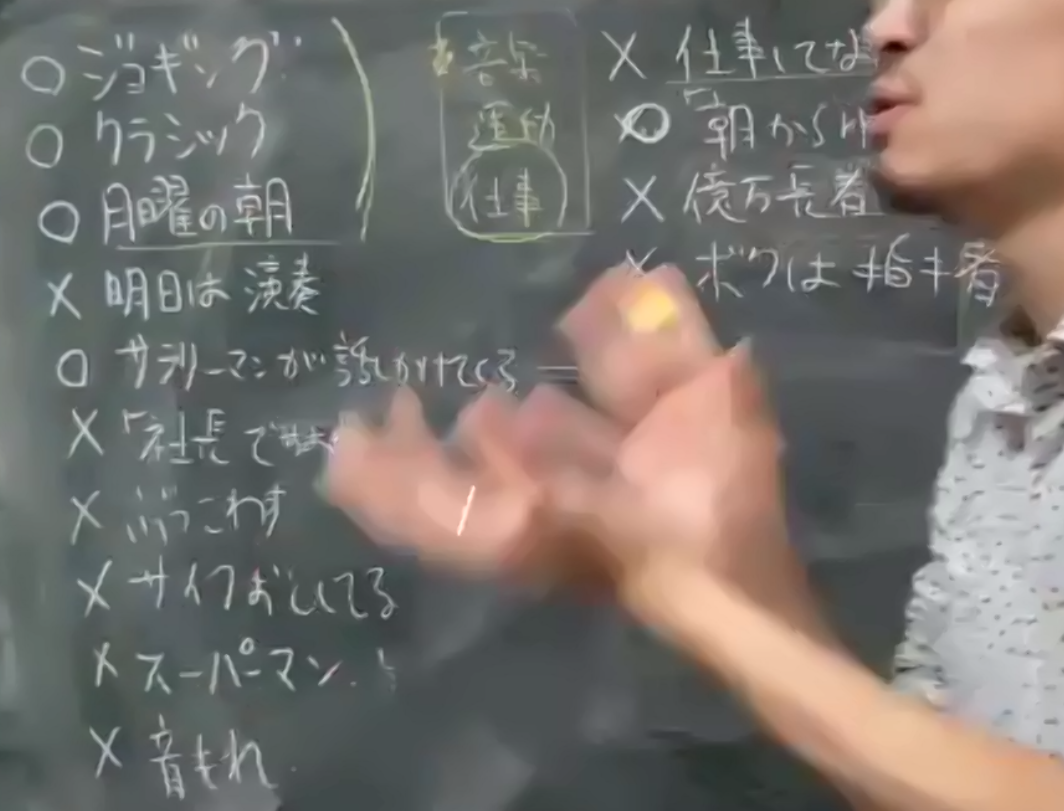 ○ ジョギング
○ クラシック
○ 月曜の朝
× 明日は演奏
○ サラリーマンが話しかけてくる =
× 「社長で
× ぶっこわす
× サイフおとしてる
× スーパーマン
× 音もれ
音楽
運動
仕事
× 仕事してな
○ 「朝から
× 億万長者
× ボクは指キ者